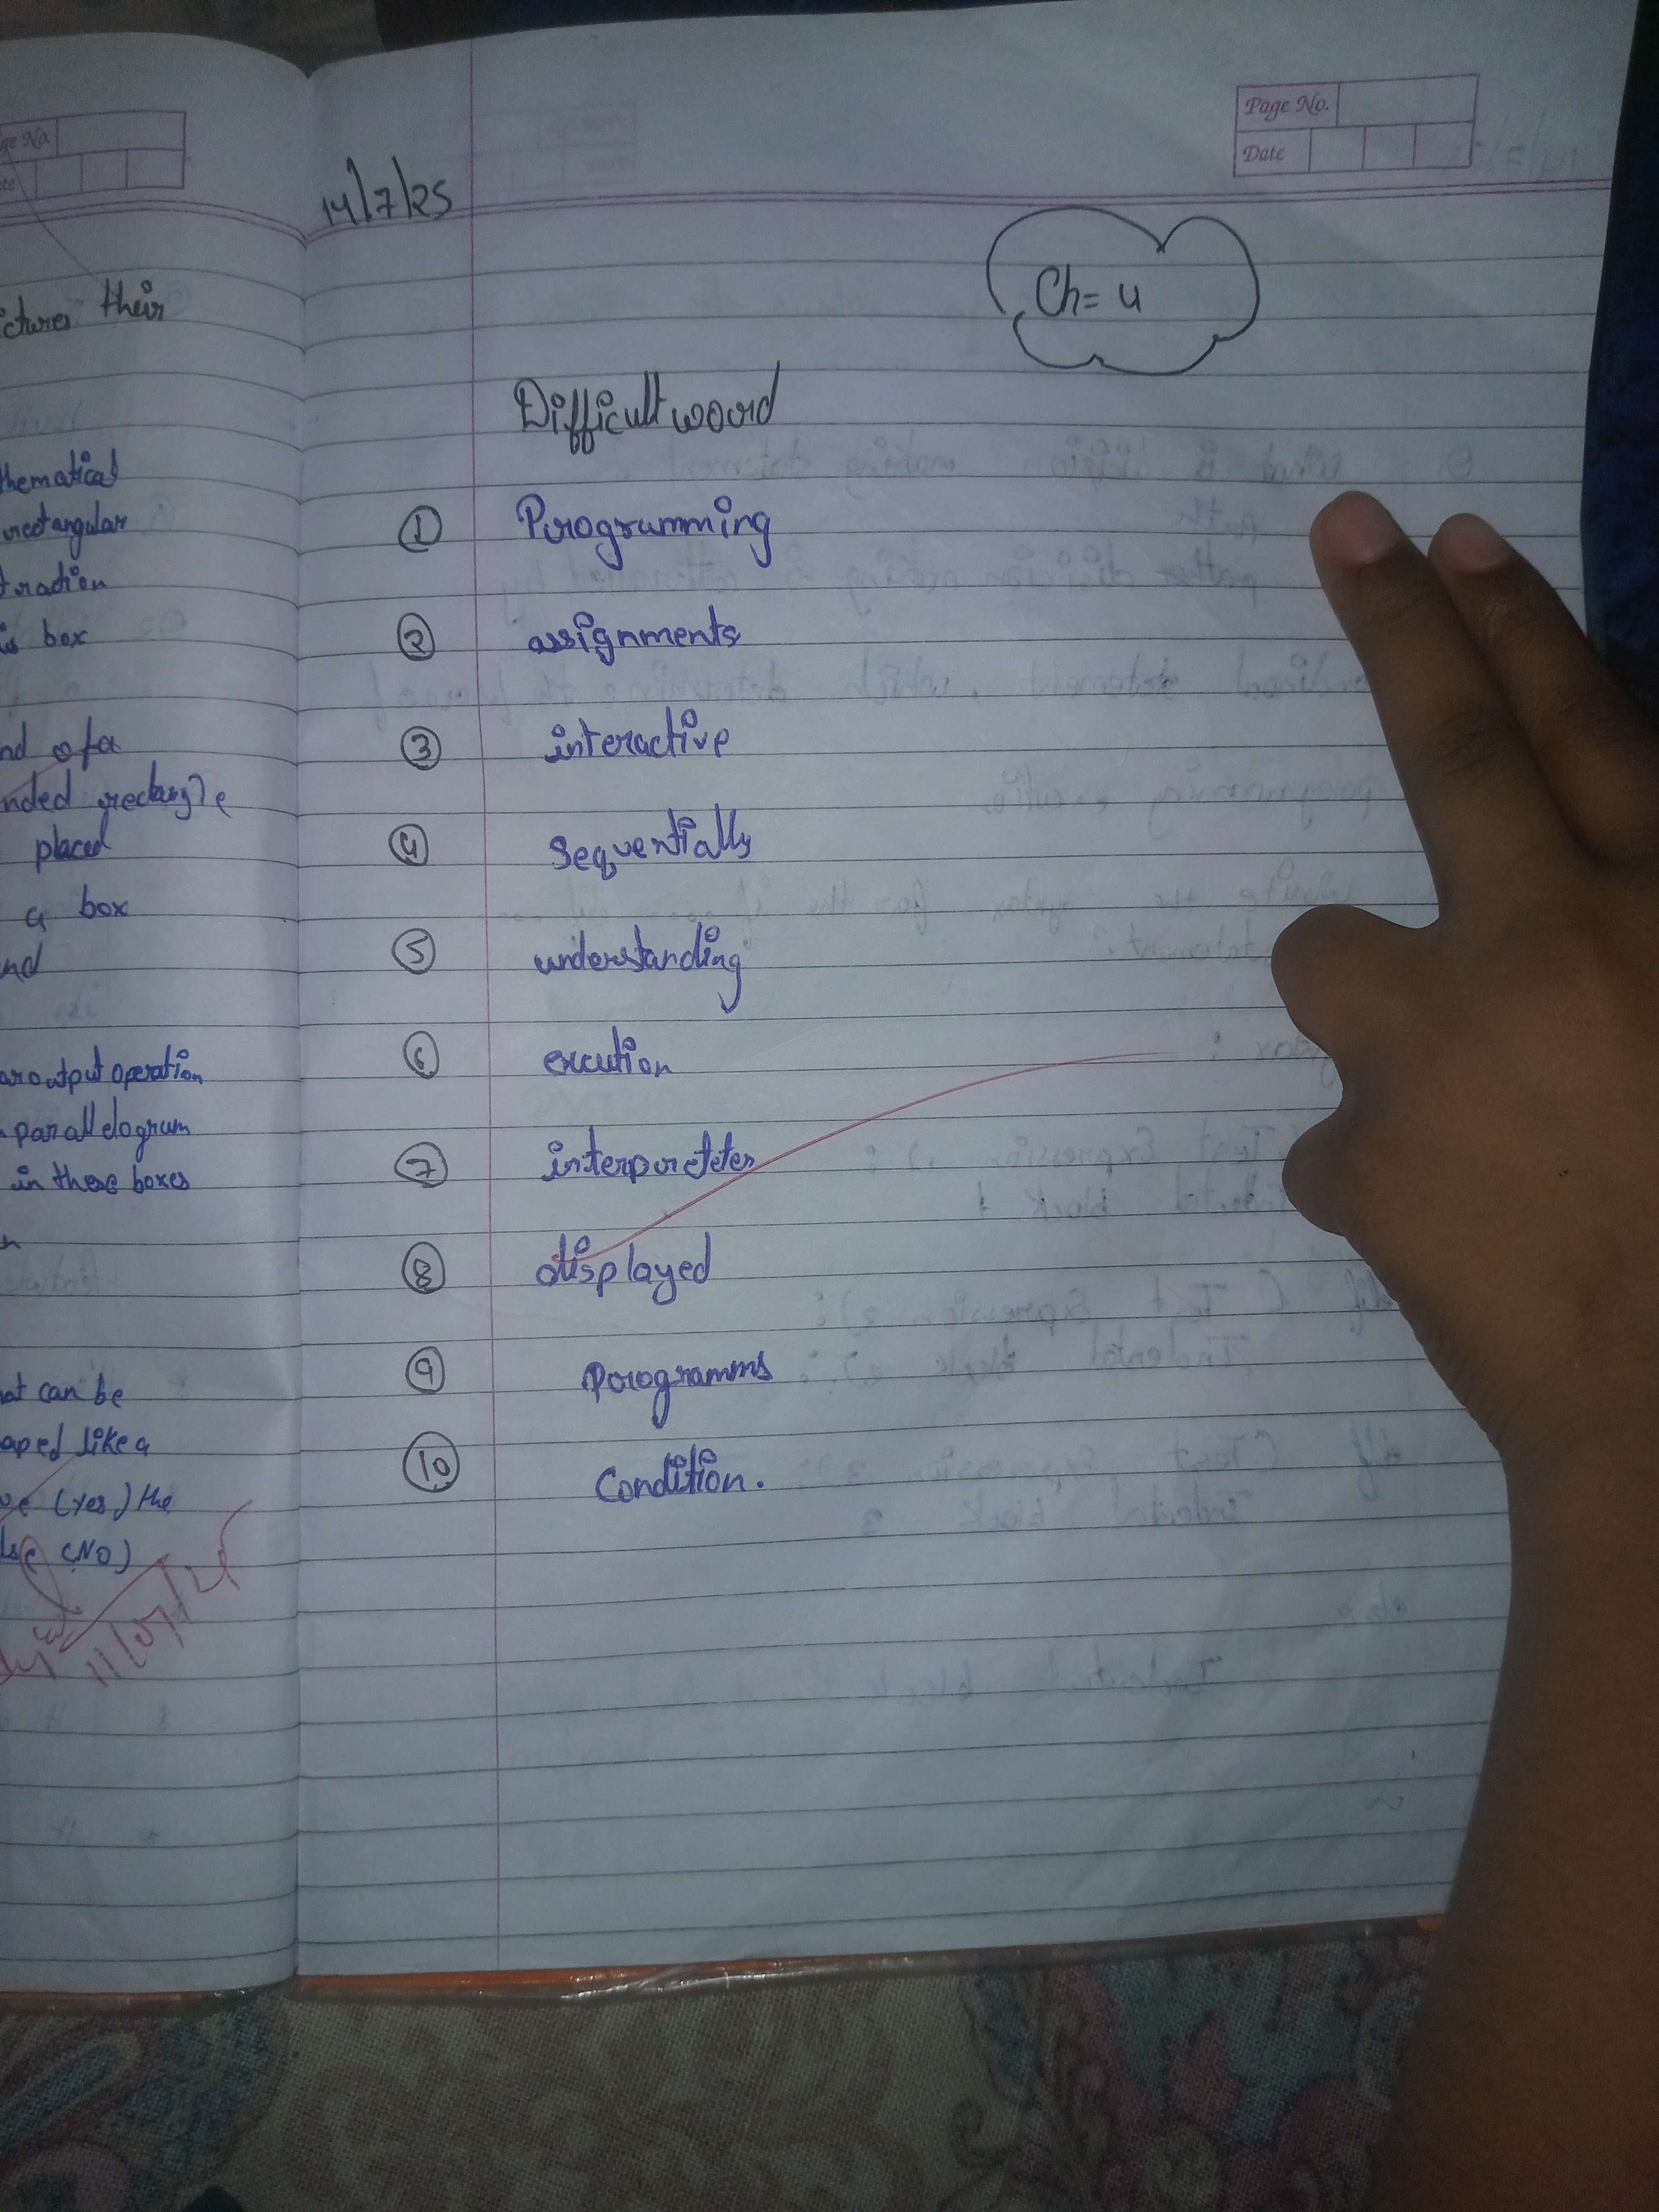 ge No.
te
ictures their
thematical
rectangular
traction
is box
nd of a
nded rectangle
placed
a box
nd
ar output operation
parallelogram
in these boxes
hat can be
aped like a
(yes) the
(NO)
11/07/25
Page No.
Date
14/7/25
Ch= 4
Difficult word
① Programming
② assignments
③ interactive
④ Sequentially
⑤ understanding
⑥ excution
⑦ interpretter
⑧ displayed
⑨ Programms
⑩ Condition.